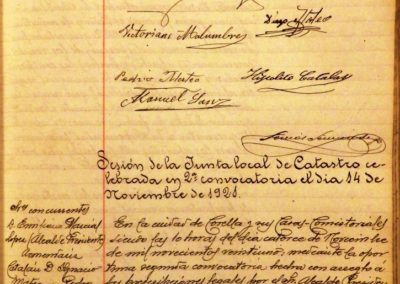 Victoriano Malumbres
Diego Mateo
Pedro Mateo
Hipólito Catalan
Manuel Sanz
Sesión de la Junta local de Catastro ce-
lebrada en 2ª convocatoria el dia 14 de
Noviembre de 1921.
concurrentes
(Alcalde Presidente
Catalan D. Ignacio
Mateo Pedro
En la ciudad de Corella y sus Casas-Comistoriales
siendo las horas del dia catorce de Noviembre
de mil novecientos veintiuno, mediante la opor-
tuna segunda convocatoria hecha con arreglo a
las prescripciones legales por el Sr. Alcalde Presiden